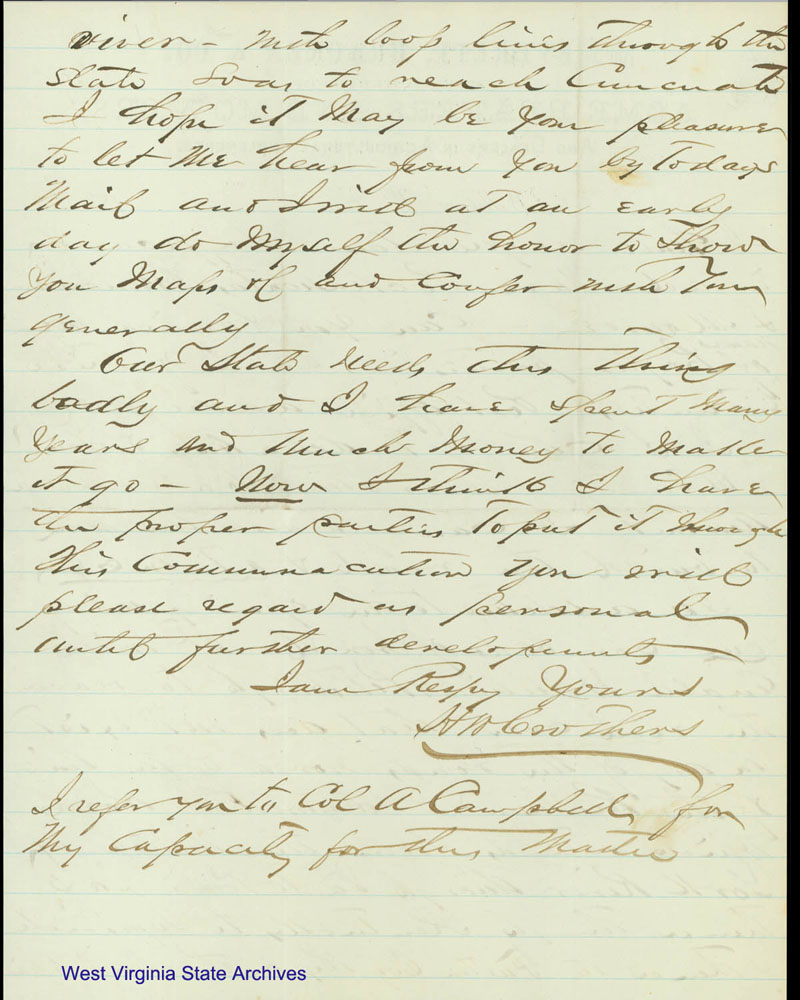 river – with loop lines through the
state so as to reach Cincinati
I hope it May be your pleasure
to let Me hear from you by Todays
Mail and I will at an early
day do Myself the honor to Show
You Maps &C and Confer with You
generally
Our State needs this Thing
badly and I have spent Many
Years and Much Money to Make
it go – Now I think I have
the proper parties To put it through
This Communacation you will
please regard as personal
until further developments
I am Respy Yours
HW Crothers
I refer you to Col A Campbell for
My Capacity for this Matter
West Virginia State Archives